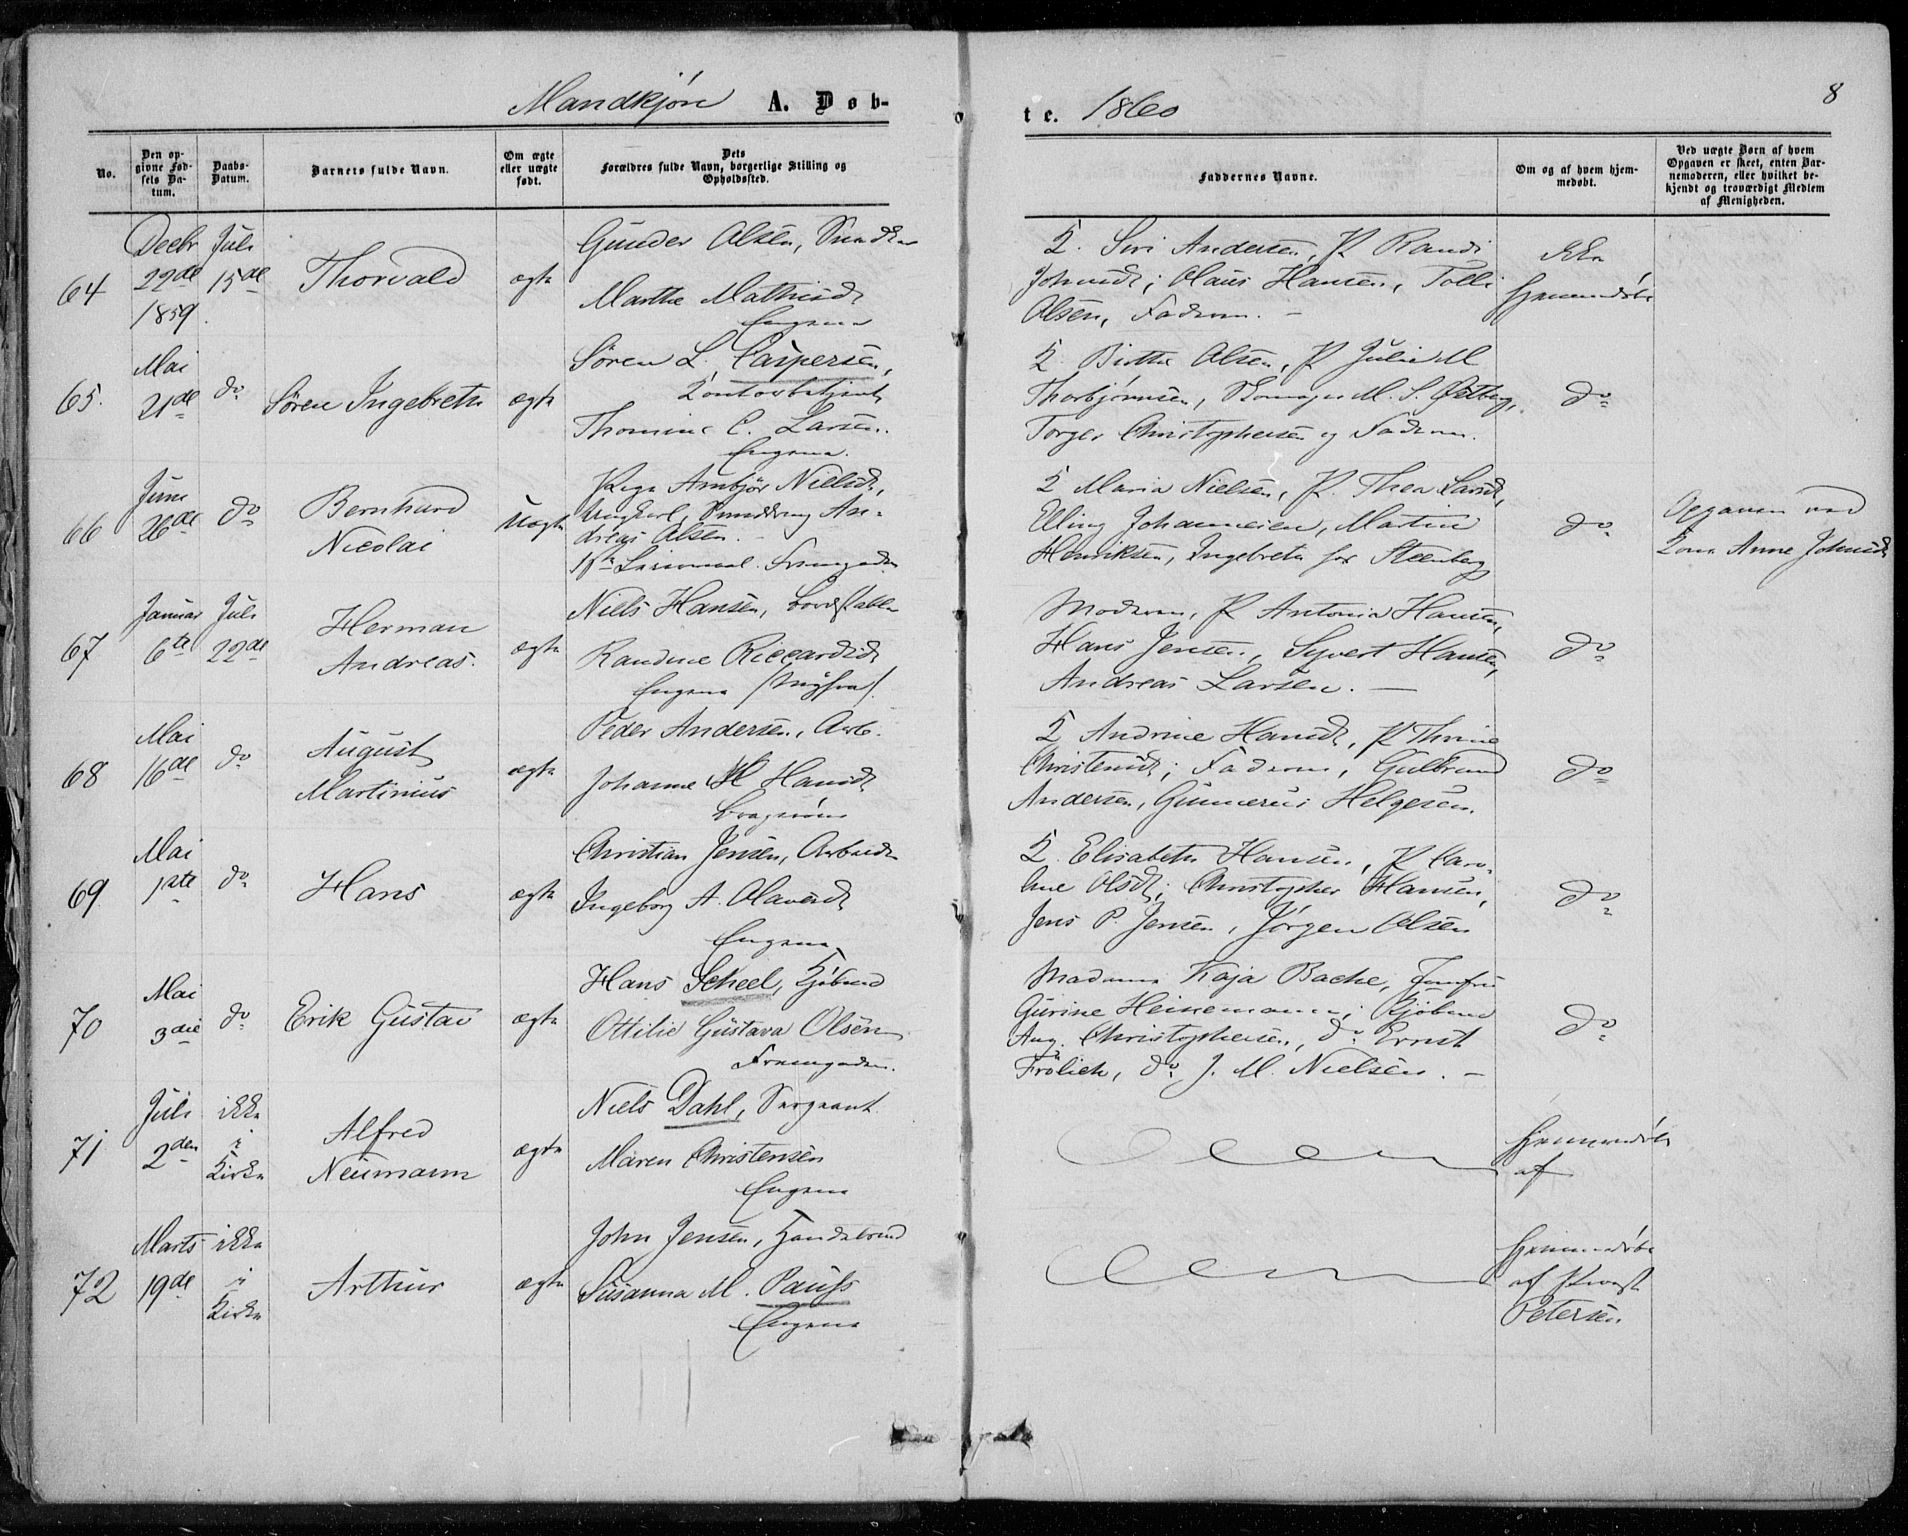 Mandkjøn A. Døb-
te. 1860
8
No.
Den op-
givne Fød-
sels Da-
tum.
Daabs-
Datum.
Barnets fulde Navn.
Om ægte
eller uægte
født.
Dets
Forældres fulde Navn, borgerlige Stilling og
Opholdssted.
Faddernes Navne.
Om og af hvem hjem-
medøbt.
Ved uægte Børn af hvem
Opgaven er skeet, enten Bar-
nemoderen, eller hvilket be-
kjendt og troværdigt Medlem
af Menigheden.
64
Decbr
29de
1859.
Juli
15de
Thorvald
ægte
Gunder Olsen, Snedker
Marthe Mathisd
Engene
K. Siri Andersen, P. Randi
Johnsd; Olaus Hansen, Tolli
Olsen, Faderen. —
Ikke
Hjemmedøbt
65.
Mai
21de
do
Søren Ingebreth
ægte
Søren L. Caspersen,
Kontorbetjent
Thomine C. Larsen.
Engene.
K. Birthe Olsen, P. Julie M
Thorbjørnsen, M. S. Østberg,
Torger Christophersen og Faderen.
do
66
Juni
26de
do
Bernhard
Nicolai
Uægte
Pige Anbjør Nielsd,
Ungkarl An-
dreas Olsen. —
K Maria Nielsen, P. Thea Larsd,
Elling Johannesen, Martin
Henriksen, Ingebreth Steenberg
do
Opgaven ved
Kone Anne Johnsd
67
Januar
6te
Juli
22de
Herman
Andreas.
ægte
Niels Hansen,
Randine Riccardsd
Engene
Moderen, P Antonia Hansen,
Hans Jensen, Syvert Hansen,
Andreas Larsen. —
do
68
Mai
16de
do
August
Martinius
ægte
Peder Andersen, Arb.
Johanne M Hansd
Bragernes
K Andrine Hansd, P Thrine
Christensd; Faderen, Gulbrand
Andersen, Gunnerus Helgesen.
do
69
Mai
1ste
do
Hans
ægte
Christian Jensen, Arbeider
Ingeborg A. Olavesd
Engene
K. Elisabeth Hansen, P Caro-
line Olsd; Christopher Hansen,
Jens P. Jensen, Jørgen Olsen
do
70
Mai
3die
do
Erik Gustav
ægte
Hans Scheel, Kjøbmd
Ottilie Gustava Olsen
Fremgaden.
Madame Kaja Bache, Jomfru
Gurine Heinemann; Kjøbmd
Aug. Christophersen, do Ernst
Frølich, do J. M. Nielsen. —
do
71
Juli
2den
ikke
i
Kirke
Alfred
Neumann
ægte
Niels Dahl, Sergeant.
Maren Christensen
Engene
Hjemmedøbt
af
72
Marts
19de
ikke
i
Kirke
Arthur
ægte
John Jensen, Handelsmd
Susanna M. Pauss
Engene
Hjemmedøbt
af Provst
Petersen